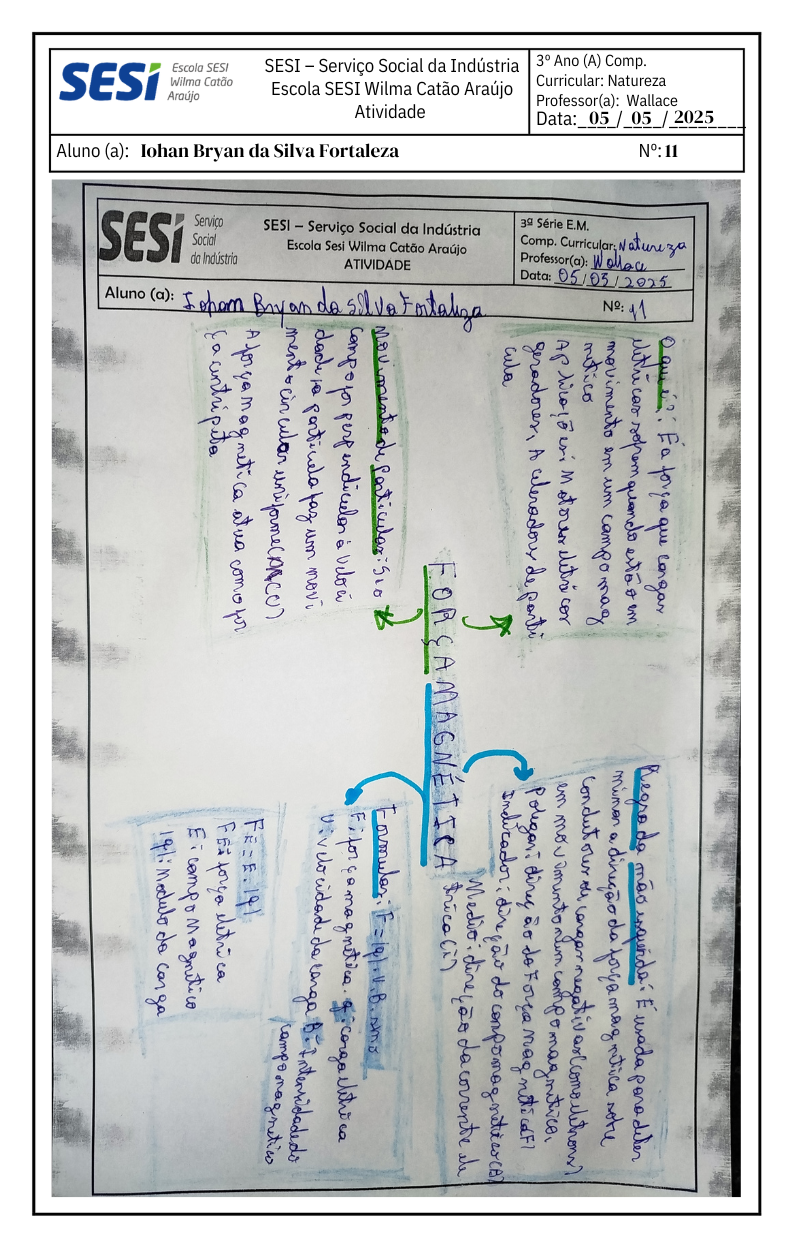 SESI Escola SESI
Wilma Catão
Araújo
SESI – Serviço Social da Indústria
Escola SESI Wilma Catão Araújo
Atividade
3º Ano (A) Comp.
Curricular: Natureza
Professor(a): Wallace
Data: 05 / 05 / 2025
Aluno (a): Iohan Bryan da Silva Fortaleza Nº: 11
SESI Serviço
Social
da Indústria
SESI – Serviço Social da Indústria
Escola Sesi Wilma Catão Araújo
ATIVIDADE
3ª Série E.M.
Comp. Curricular: Natureza
Professor(a): Wallace
Data: 05/05/2025
Aluno (a): Iohan Bryan da Silva Fortaleza Nº: 11
O que é?: É a força que cargas
elétricas sofrem quando estão em
movimento em um campo mag
nético
Aplicações: Motores elétricos
geradores, Aceleradores de partí
cula
Movimento de Particulas: Se o
campo for perpendicular à veloci
dade, a partícula faz um movi
mento circular uniforme (MCU)
A força magnética atua como for
ça centrípeta
FORÇA MAGNÉTICA
Regra da mão esquerda: É usada para deter
minar a direção da força magnética sobre
condutores ou cargas negativas (como elétrons)
em movimento num campo magnético,
Polegar: direção da Força magnética (F)
Indicador: direção do campo magnético (B)
Medio: direção da corrente elé
trica (i)
Formulas: F = |q|.V.B.senθ
F: força magnética. q: carga elétrica
V: velocidade da carga B: Intensidade do
campo magnético
FE = E.|q|
FE = força elétrica
E: campo Magnético
|q|: Modulo da carga